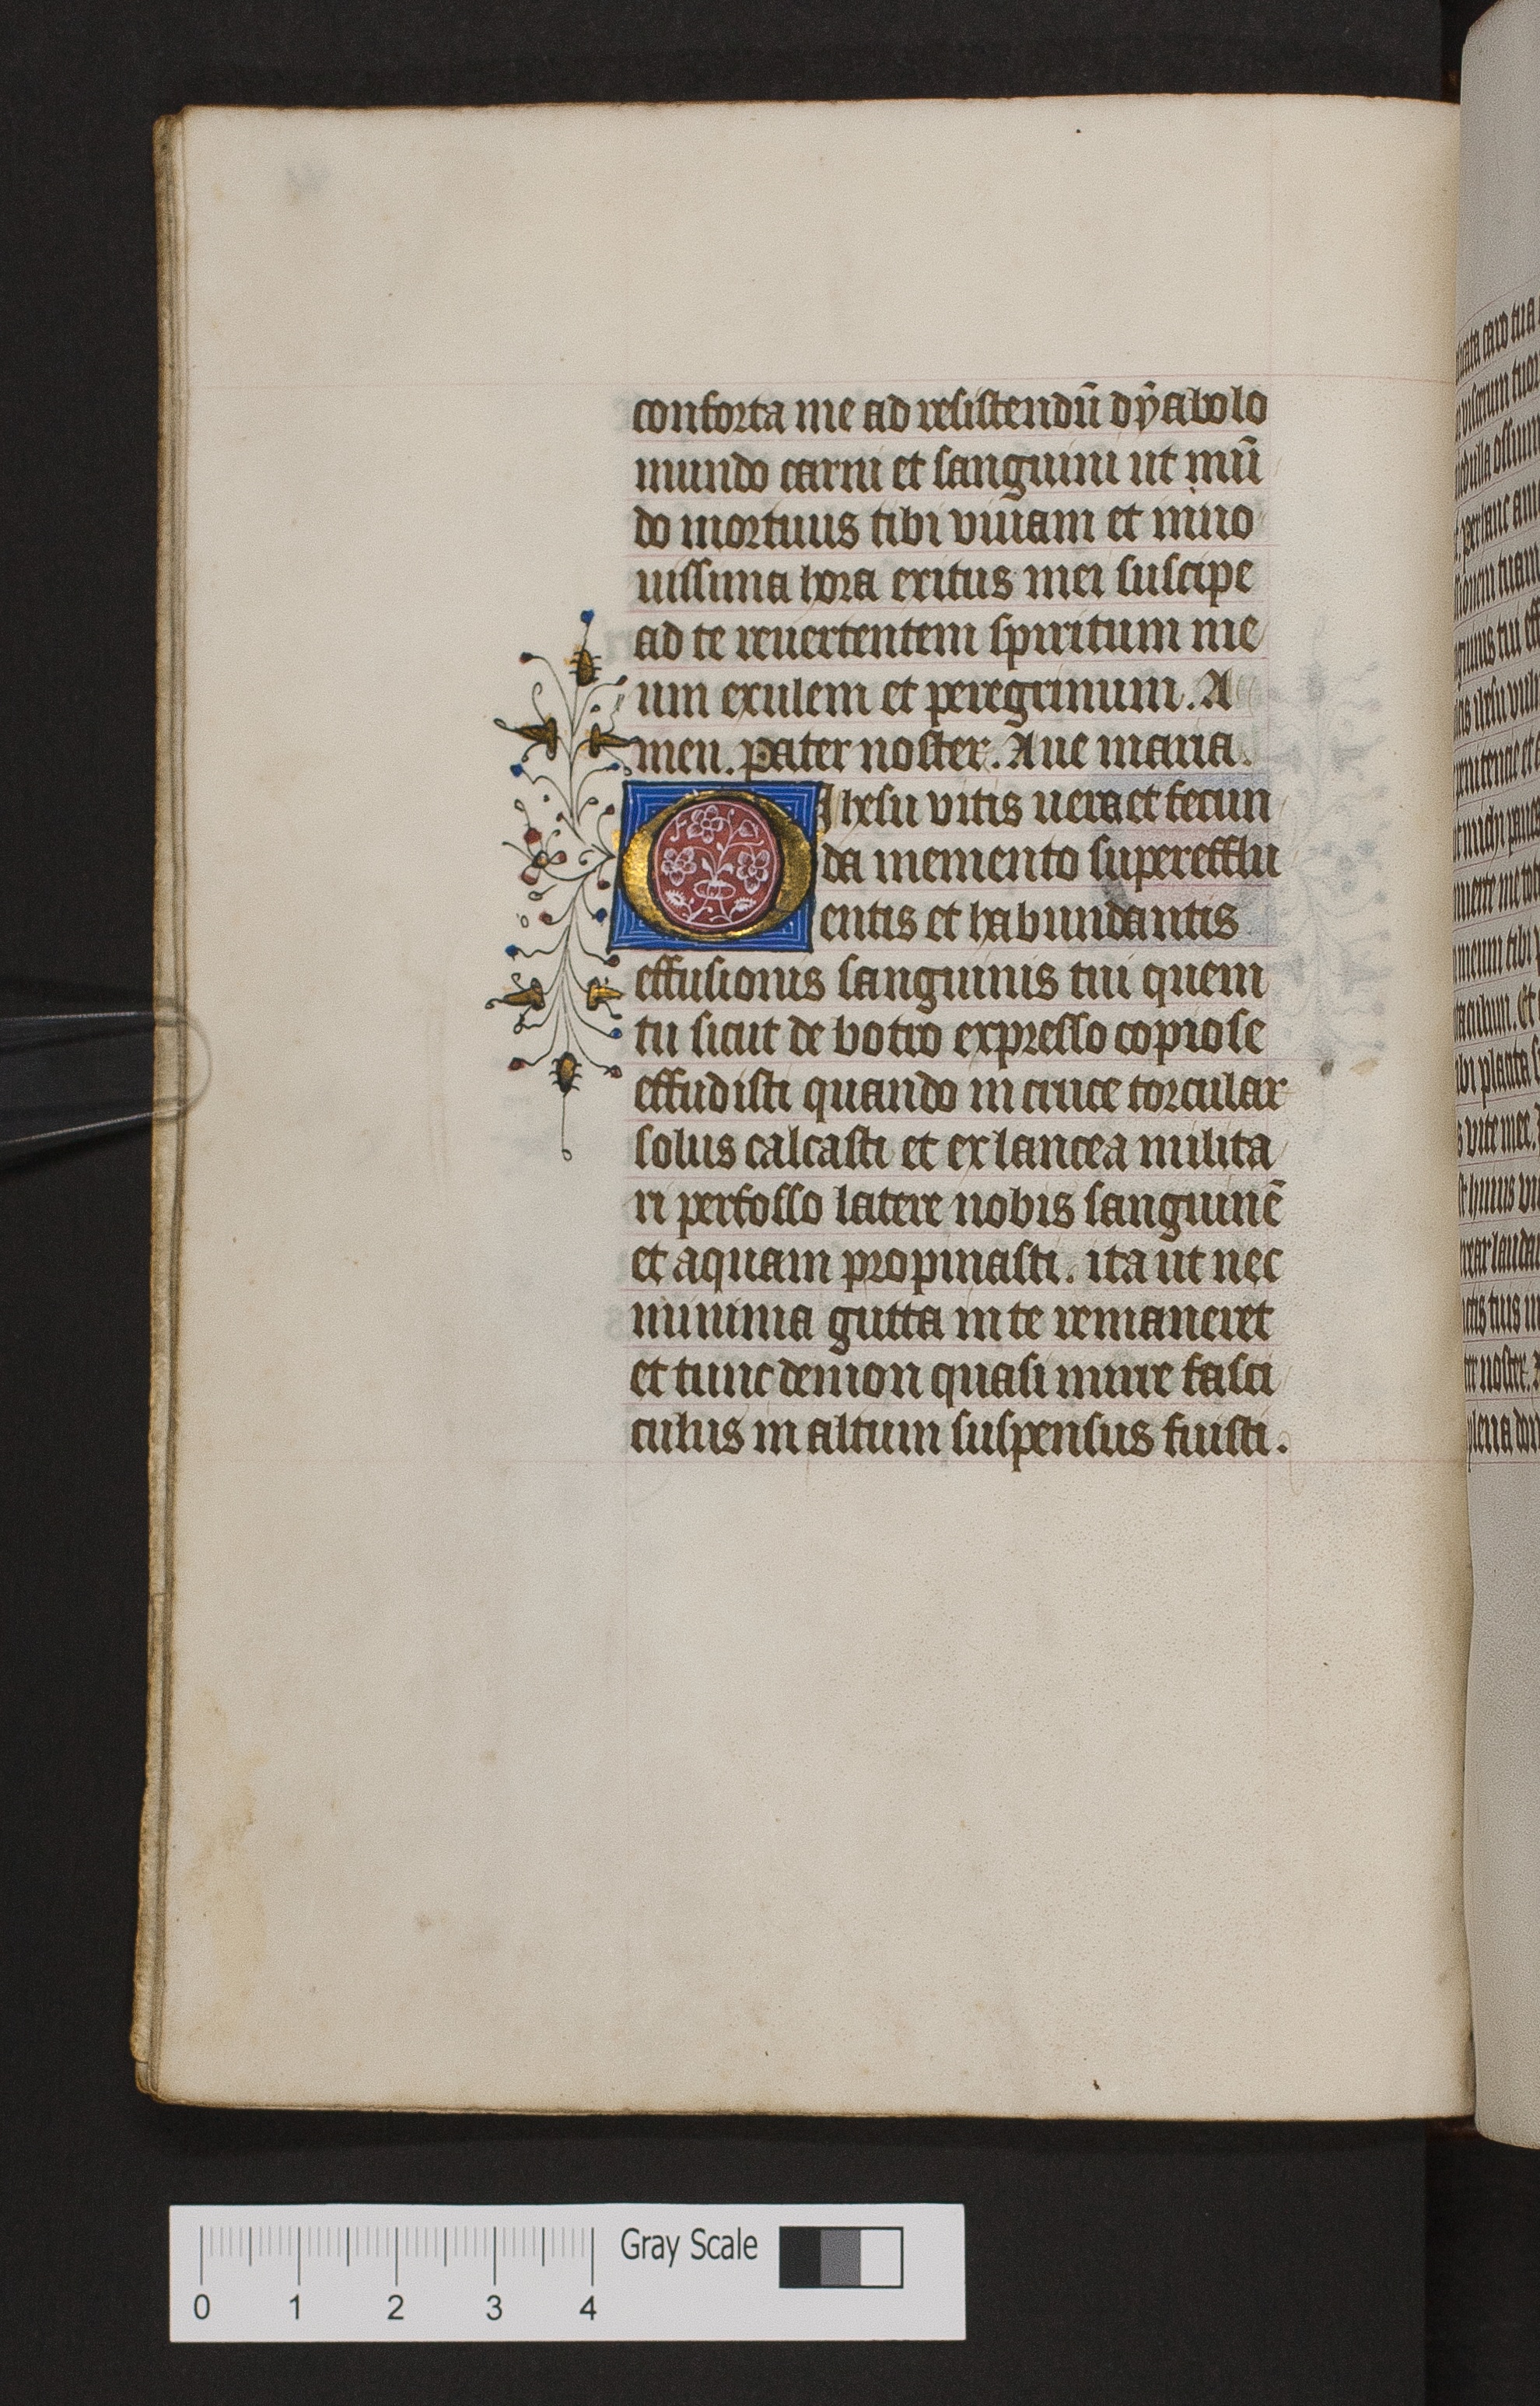 conforta me ad resistendū dÿabolo
mundo carni et sanguini ut mū
do mortuus tibi viuam et in no
uissima hora exitus mei suscipe
ad te reuertentem spiritum me
um exulem et peregrinum. A
men. pater noster. Aue maria.
O Ihesu vitis uera et fecun
da memento superefflu
entis et habundantis
effusionis sanguinis tui quem
tu sicut de botro expresso copiose
effudisti quando in cruce torcular
solus calcasti et ex lancea milita
ri perfosso latere nobis sanguinē
et aquam propinasti. ita ut nec
minima gutta in te remaneret
et tunc demon quasi mirre fasci
culus in altum suspensus fuisti.
Gray Scale
0 1 2 3 4